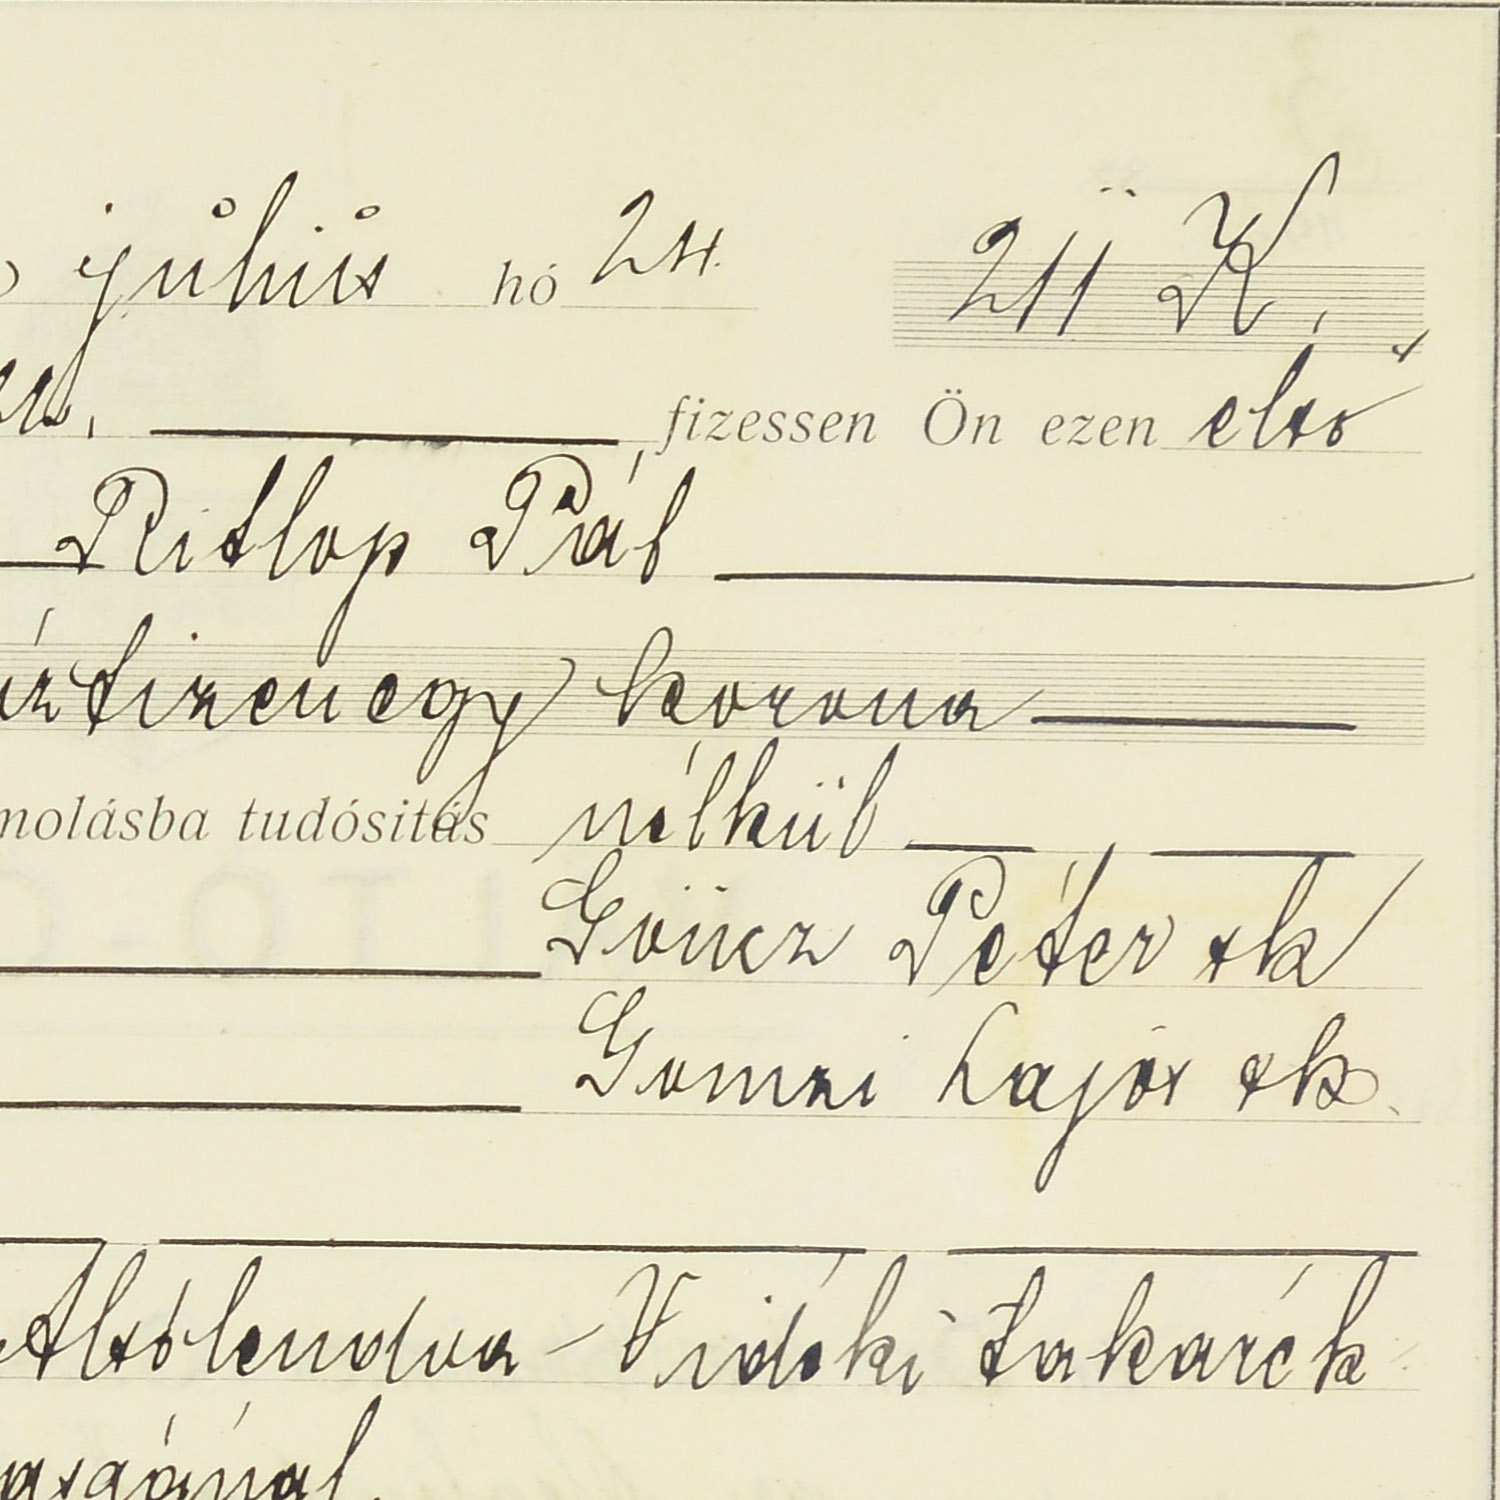 július hó 24. 211 K.
fizessen Ön ezen első
Ritlop Pál
tizenegy korona
tudósitás nélkül
Göncz Péter sk
Gomzi Lajos sk.
Alsólendva-Vidéki Takarék